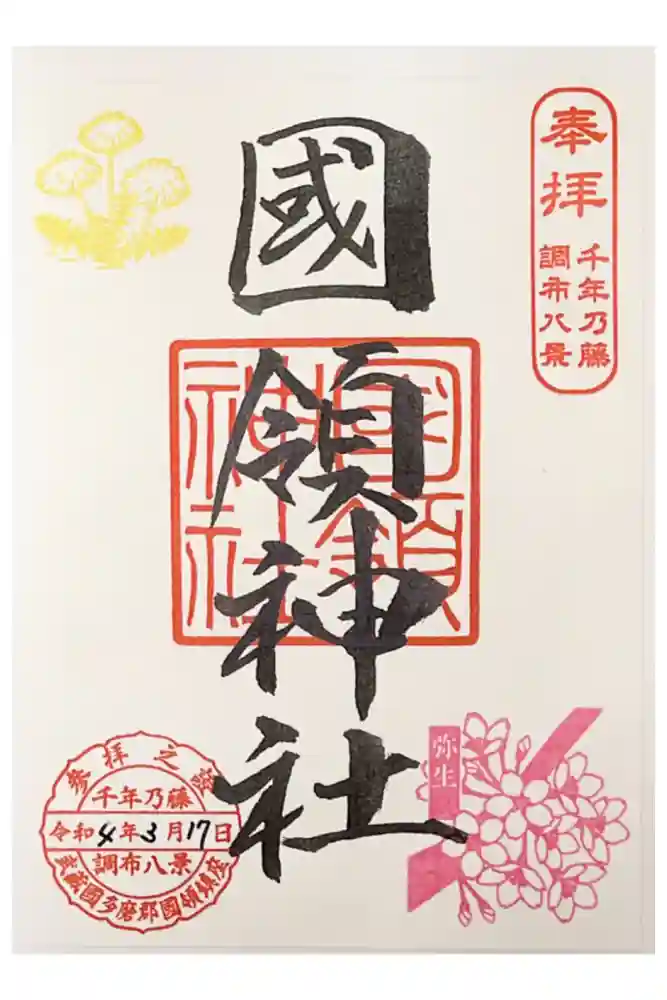 奉拝
千年乃藤
調布八景
國領神社
國領
神社
弥生
参拝之證
千年乃藤
令和4年3月17日
調布八景
武蔵國多磨郡國領鎮座